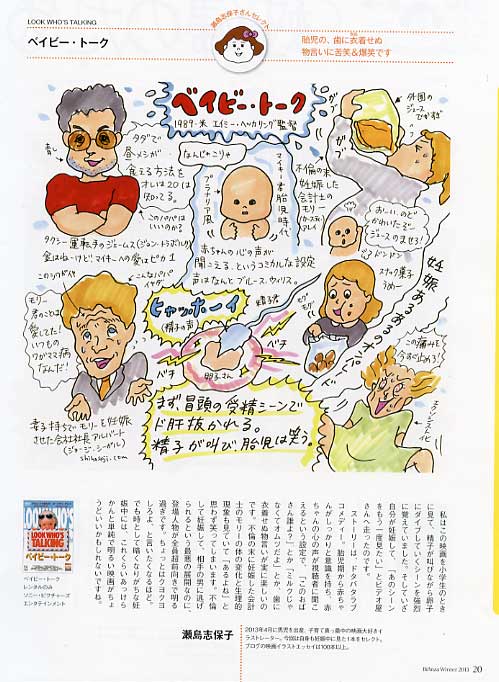 LOOK WHO'S TALKING
ベイビー・トーク
瀬島志保子さんセレクト
胎児の、歯に衣着せぬ
物言いに苦笑&爆笑です
ベイビー・トーク
1989・米 エイミー・ヘッカリング監督
青い
タダで
昼メシが
食える方法を
オレは20は
知ってる。
このパパは
いいのかる
タクシー運転手のジェームス(ジョン・トラボルタ)
金はねーけど、マイキーへの愛はピカ1
なんじゃこりゃ
プラナリア風
マイキー君胎児時代
赤ちゃんの心の声が
聞こえる、というコミカルな設定
声はなんとブルース・ウィリス。
不倫の末
妊娠した
会計士の
モリー
アレイ
外国の
ジュース
でかすぎ
ガブ
おーい、のど
かわいたぞー
ジュースのませろ!
ドンドン
妊娠あるある
スナック菓子
うめー
モグモグ
この痛みを
今すぐ止めろ!
モリー
君のことは
愛してた!
いつもの
ワガママ病
なんだ!
こんなパパ
イヤダ
妻子持ちでモリーを妊娠
させた会社社長アルバート
(ジョージ・シーガル)
ヒャッホーイ
(精子の声)
精子君
ベチ
ベチ
ベチ
卵子さん
まず冒頭の受精シーンで
ド肝抜かれる。
精子が叫び、胎児は笑う。
私はこの映画を小学生のとき
に見て、精子が叫びながら卵子
にダイブしていくシーンを強烈
に覚えていました。そしていざ
自分が妊娠して「あのシーン
をもう一度見たい」とビデオ屋
さんへ走ったのです。
ストーリーは、ドタバタラブ
コメディー。胎児期から赤ちゃ
んがしっかりと意識を持ち、赤
ちゃんの心の声が視聴者に聞こ
えるという設定で、「このおば
さん誰よ?」とか「ミルクじゃ
なくてオムツだよ」とか、歯に
衣着せぬ物言いが実に楽しいの
です。不倫の末に妊娠した会計
士のモリーの体の変化や生理的
現象も見ていて「あるよね」と
思わず笑ってしまいます。不倫
して妊娠して、相手の男に逃げ
られるという最悪の展開なのに、
登場人物が全員超前向きで明る
過ぎです。ちょっとはクヨクヨ
しろよ、と言いたくなるほど。
でも時として暗くなりがちな妊
娠中には、これくらいあっけら
かんと単純で明るい映画がちょ
うどいいかもしれないですね。
LOOK WHO'S
TALKING
ベイビー・トーク
ベイビー・トーク
レンタルのみ
ソニー・ピクチャーズ
エンタテインメント
瀬島志保子
2013年4月に男児を出産、子育て真っ最中の映画大好きイ
ラストレーター。今回は自身も妊娠中に見た1本をセレクト。
ブログの映画イラストエッセイは100本以上。
Winter 2013 20